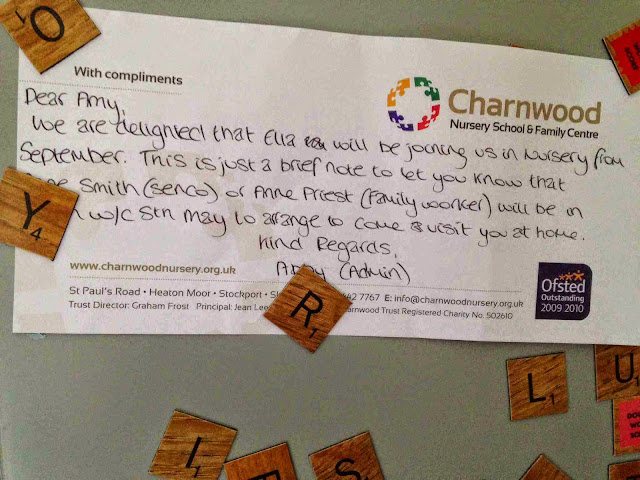 O
With compliments
Charnwood
Nursery School & Family Centre
Dear Amy,
We are delighted that Ella will be joining us in Nursery from
September. This is just a brief note to let you know that
Smith (senco) or Anne Priest (family worker) will be in
w/c 5th May to arrange to come & visit you at home.
Kind Regards,
(Admin)
Y
4
www.charnwoodnursery.org.uk
St Paul's Road • Heaton Moor • Stockport •
7767 E: info@charnwoodnursery.org.uk
Trust Director: Graham Frost Principal: Jean
Trust Registered Charity No. 502610
Ofsted
Outstanding
2009|2010
R
1
L
1
U
1
I
1
S